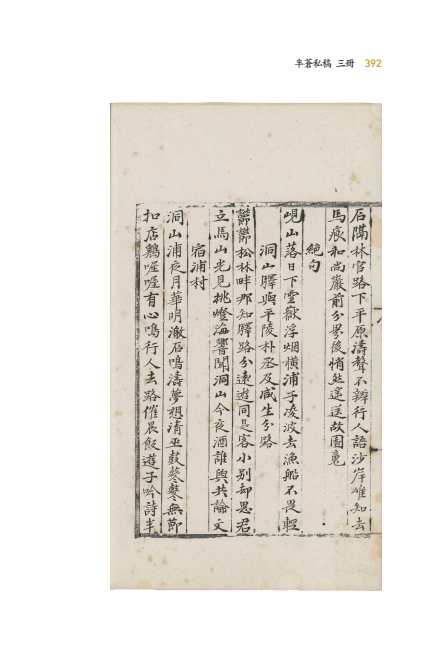 半蒼私稿 三冊 392
石隅林官路下平原濤聲不辨行人語沙岸難知去
馬痕和尚巖前分界後悄然遙送故園魂
絶句
峴山落日下雲嶽浮烟橫浦子凌波去漁船不畏輕
洞山驛與平陵朴丞及咸生分路
鬱鬱松林畔那知驛路分遠遊同是客小別却思君
立馬山光見挑燈海響聞洞山今夜酒誰與共論文
宿浦村
洞山浦夜月華明激石鳴濤夢想淸巫鼓鼕鼕無節
扣店鷄喔喔有心鳴行人去路催晨飯遊子吟詩半